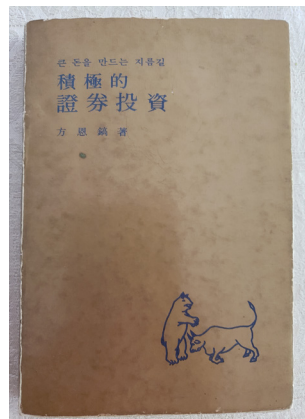 큰 돈을 만드는 지름길
積極的
證券投資
方恩鎬著